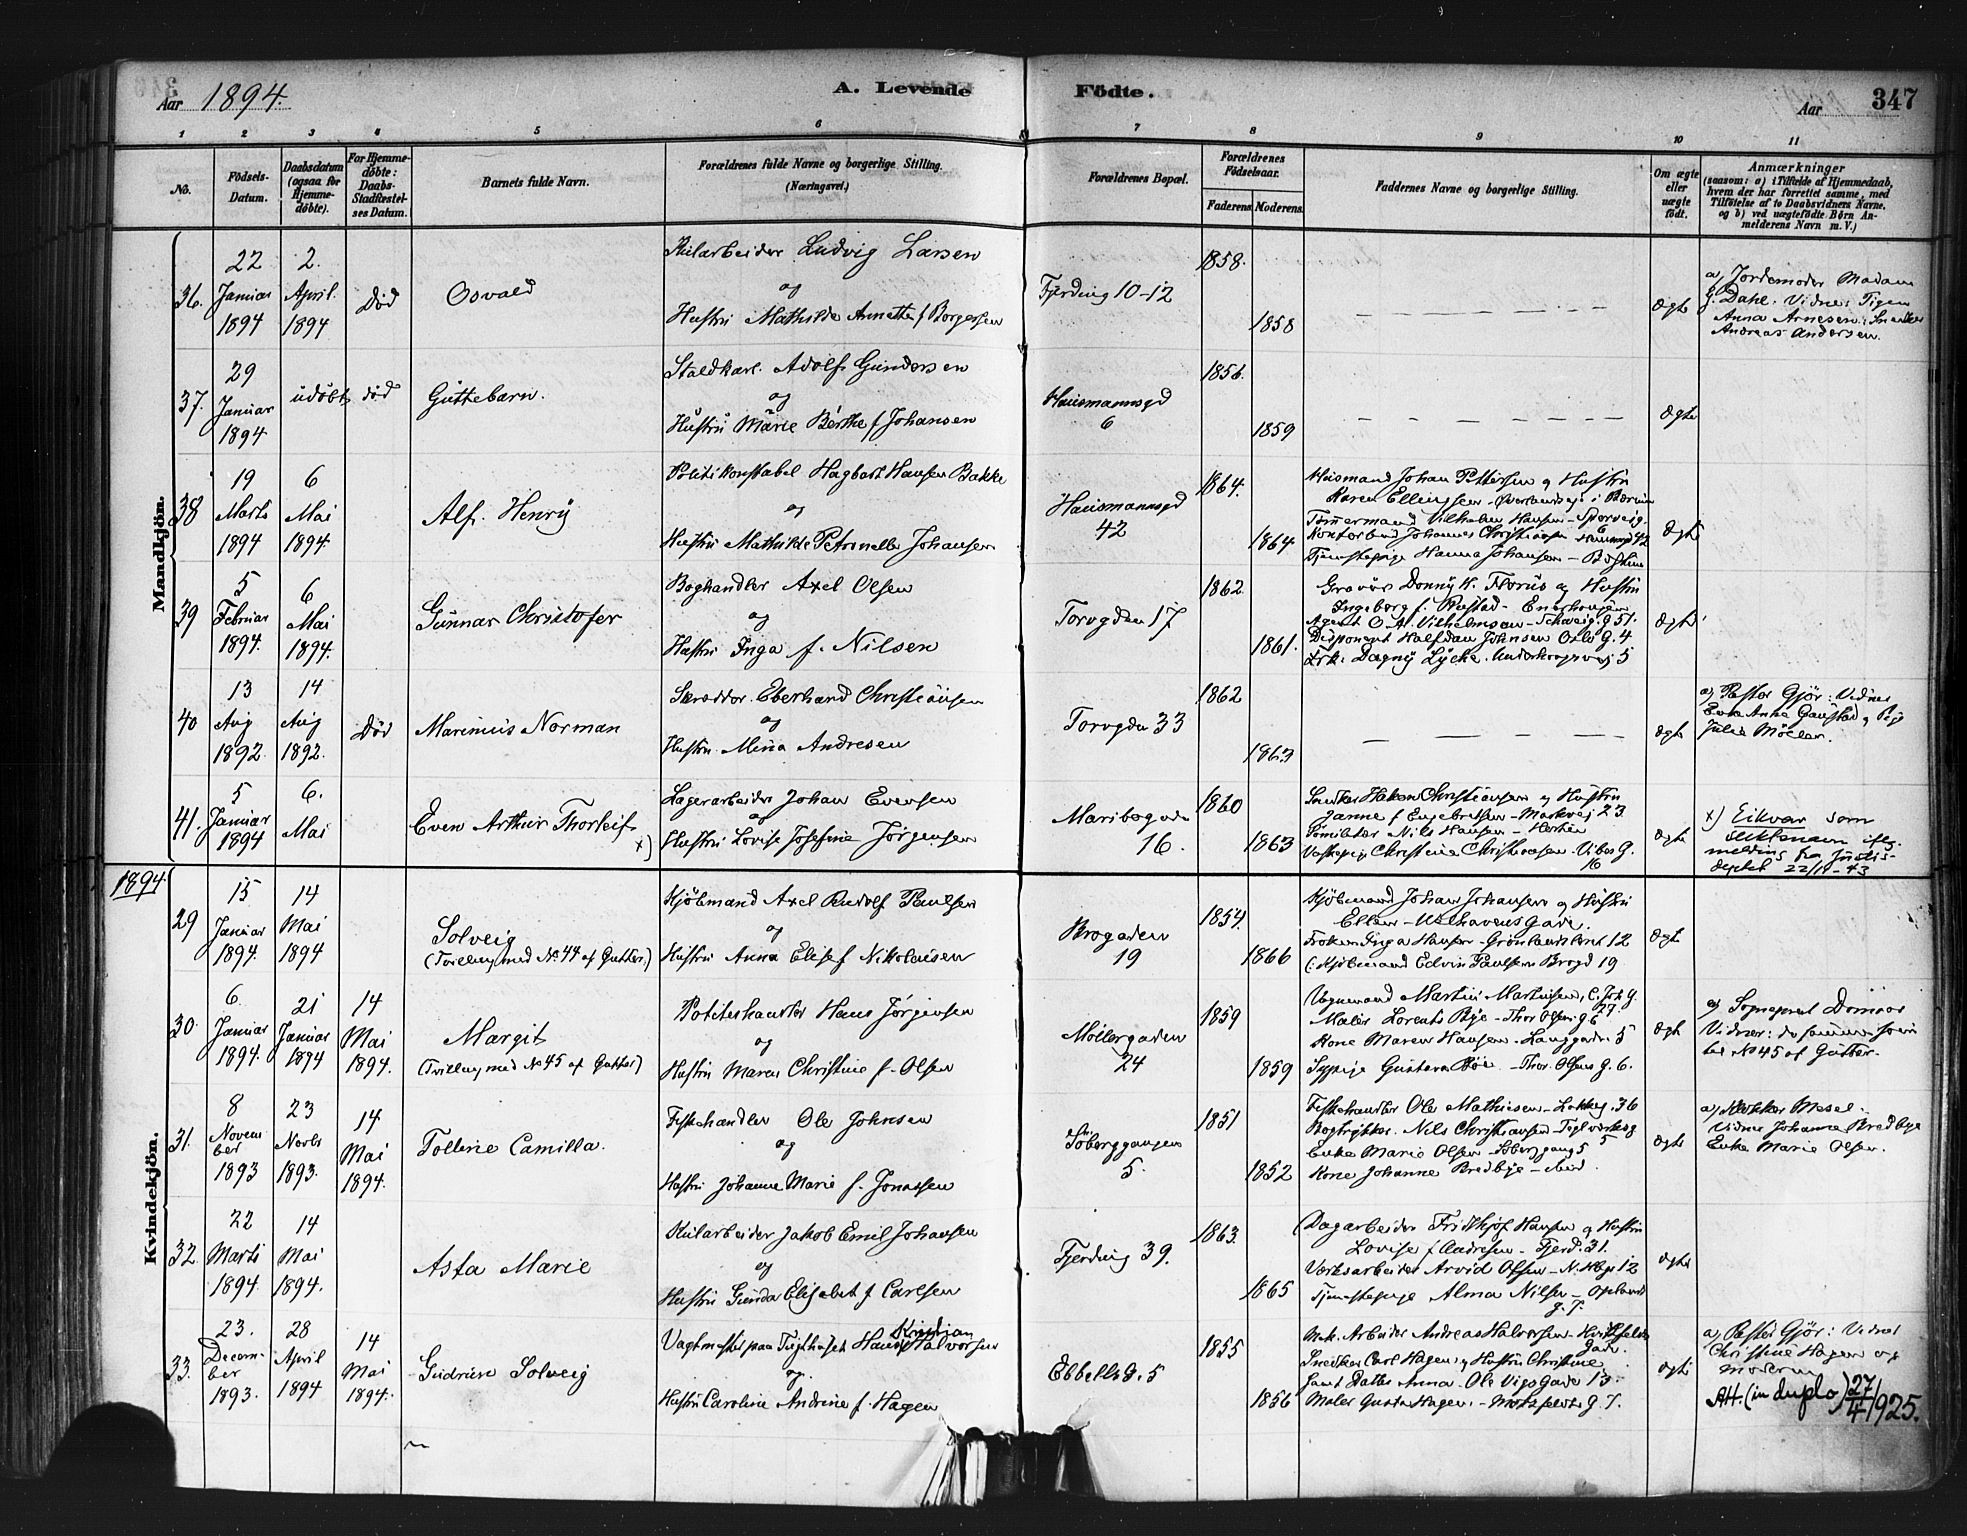 Aar 1894.
A. Levende Födte.
Aar 347
1 2 3 4 5 6 7 8 9 10 11
No.
Födsels-
Datum.
Daabsdatum
(ogsaa for
Hjemme-
döbte).
For Hjemme-
döbte:
Daabs-
Stadfæstel-
ses Datum.
Barnets fulde Navn.
Forældrenes fulde Navne og borgerlige Stilling.
(Næringsvei.)
Forældrenes Bopæl.
Forældrenes
Födselsaar.
Faderens Moderens
Faddernes Navne og borgerlige Stilling.
Om ægte
eller
uægte
födt.
Anmærkninger
(saasom: a) i Tilfælde af Hjemmedaab,
hvem der har forrettet samme, med
Tilföielse af to Daabsvidners Navne,
og b) ved uægtefödte Börn An-
melderens Navn m. V.)
Mandkjön.
36.
22
Januar
1894
2.
April.
1894
Död
Osvald
Ludvig Larsen
og
Hustru Mathilde Annette f Borgersen
Fjerding 10-12
1858.
1858
Ægte
a, Jordemoder Madam
Dahl. Vidner: Pigen
Anna Arnesen, Snedker
Andreas Andersen.
37.
29
Januar
1894
udöbt
död
Guttebarn.
Staldkarl. Adolf Gundersen
og
Hustru Marie Berthe f Johansen
Hausmannsgd
6
1856.
1859
Ægte
38
19
Marts
1894
6
Mai
1894.
Alf. Henry
Politikonstabel Hagbart Hansen Bakke
og
Hustru Mathilde Petronelle Johansen
Hausmannsgd
42
1864.
1864
Husmand Johan Pettersen og Hustru
Karen Ellingsen i Bærum
Tömmermand Vilhelm Hansen
Johannes Christiansen
Tjenestepige Hanna Johansen
Ægte
39
5
Februar
1894.
6
Mai
1894.
Gunnar Christofer
Boghandler Axel Olsen
og
Hustru Inga f. Nilsen
Torvgden 17
1862.
1861.
Gravör og Hustru
Ingeborg f. Rustad - Enerhougen
Agent O. A. Vilhelmsen
Disponent Halfdan Johnsen Oslo G. 4
Frk. Dagny Lyche. 5
Ægte
40
13
Aug
1892.
14
Aug
1892.
Död
Marinius Norman
Skrædder. Eberhard Christiansen
og
Hustru Mina Andresen
Torvgden 33
1862
1863
Ægte
a, Pastor Gjör: Vidner
Enke Anne Gaustad og Pige
Julie Möller.
41.
5
Januar
1894
6.
Mai
Even Arthur Thorleif
x)
Lagerarbeider Johan Evensen
og
Hustru Lovise Josefine Jörgensen
Maribogaden
16.
1860
1863
Snedker Hakon Christiansen og Hustru
Janne f Engebretsen - Markvej 23.
Nils Hansen
Christine Christiansen - Vibes G.
16
Ægte
x) Eikvar som
slektsnavn ifлg.
melding fra Justis-
deptet 22/11-43
1894.
Kvindekjön.
29
15
Januar
1894.
14
Mai
1894
Solveig
(Tvilling med No. 44 af Gutter.)
Kjöbmand Axel Rudolf Paulsen
og
Hustru Anna Elise f Nikolaisen
Brogaden
19
1854.
1866
Kjöbmand Johan Johansen og Hustru
Ellen - Welhavens Gade.
Fröken Inga Hansen - Grönlandsleret 12
Kjöbmand Edvin Paulsen Brogd 19
Ægte
30.
6.
Januar
1894.
21
Januar
1894
14
Mai
1894.
Margit
(Tvilling med No 45 af Gutter)
Hans Jörgensen
og
Hustru Maren Christine f. Olsen
Möllergaden
24
1859
1859
Vognmand Martin Martinsen
Maler Lorents Bye - Thor Olsens g 6
Kone Maren Hansen - Langgade 5
Sypige Gustava Böe. - Thor Olsens G. 6.
Ægte
a) Sogneprest
Vidner: de samme som
ved No 45 af Gutter.
31.
8
Novem
ber
1893
23
Novbr
1893.
14
Mai
1894.
Tolline Camilla.
Fiskehandler Ole Johnsen
og
Hustru Johanne Marie f. Jonassen
Söberggangen
5.
1851
1852
Fiskehandler Ole Mathiesen
Bogtrykker. Nils Christiansen
Enke Marie Olsen - Söberggang 5
Kone Johanne Bredbye
Ægte
a, Klokker
Vidner Johanne Bredbye
Enke Marie Olsen.
32.
22
Marts
1894.
14
Mai
1894.
Asta Marie
Jakob Emil Johansen
og
Hustru Gunda Elisabet f Carlsen
Fjerding 39.
1863.
1865
Dagarbeider Fridthjof Hansen og Hustru
Lovise f Andresen - Fjerd. 31.
Værksarbeider Arvid Olsen
Tjenestepige Alma Nilsen - Oplands
g. 7.
Ægte
33.
23.
Decem-
ber
1893.
28
April
1894
14
Mai
1894.
Gudrun Solveig
Kristian
Vagtmester paa Tugthuset Hans Halvorsen
og.
Hustru Caroline Andrine f. Hagen
Ebbells G. 5
1855
1856
Arbeider Andreas Halvorsen
Gade.
Snedker Carl Hagen og Hustru Christine
samt Datter Anna. Ole Vigs Gade 13.
Maler Gustav Hagen. - Motzfeldts G. 7.
Ægte
a, Pastor Gjör: Vidner
Christine Hagen og
moderen
Att. (in duplo) 27/4 1925.